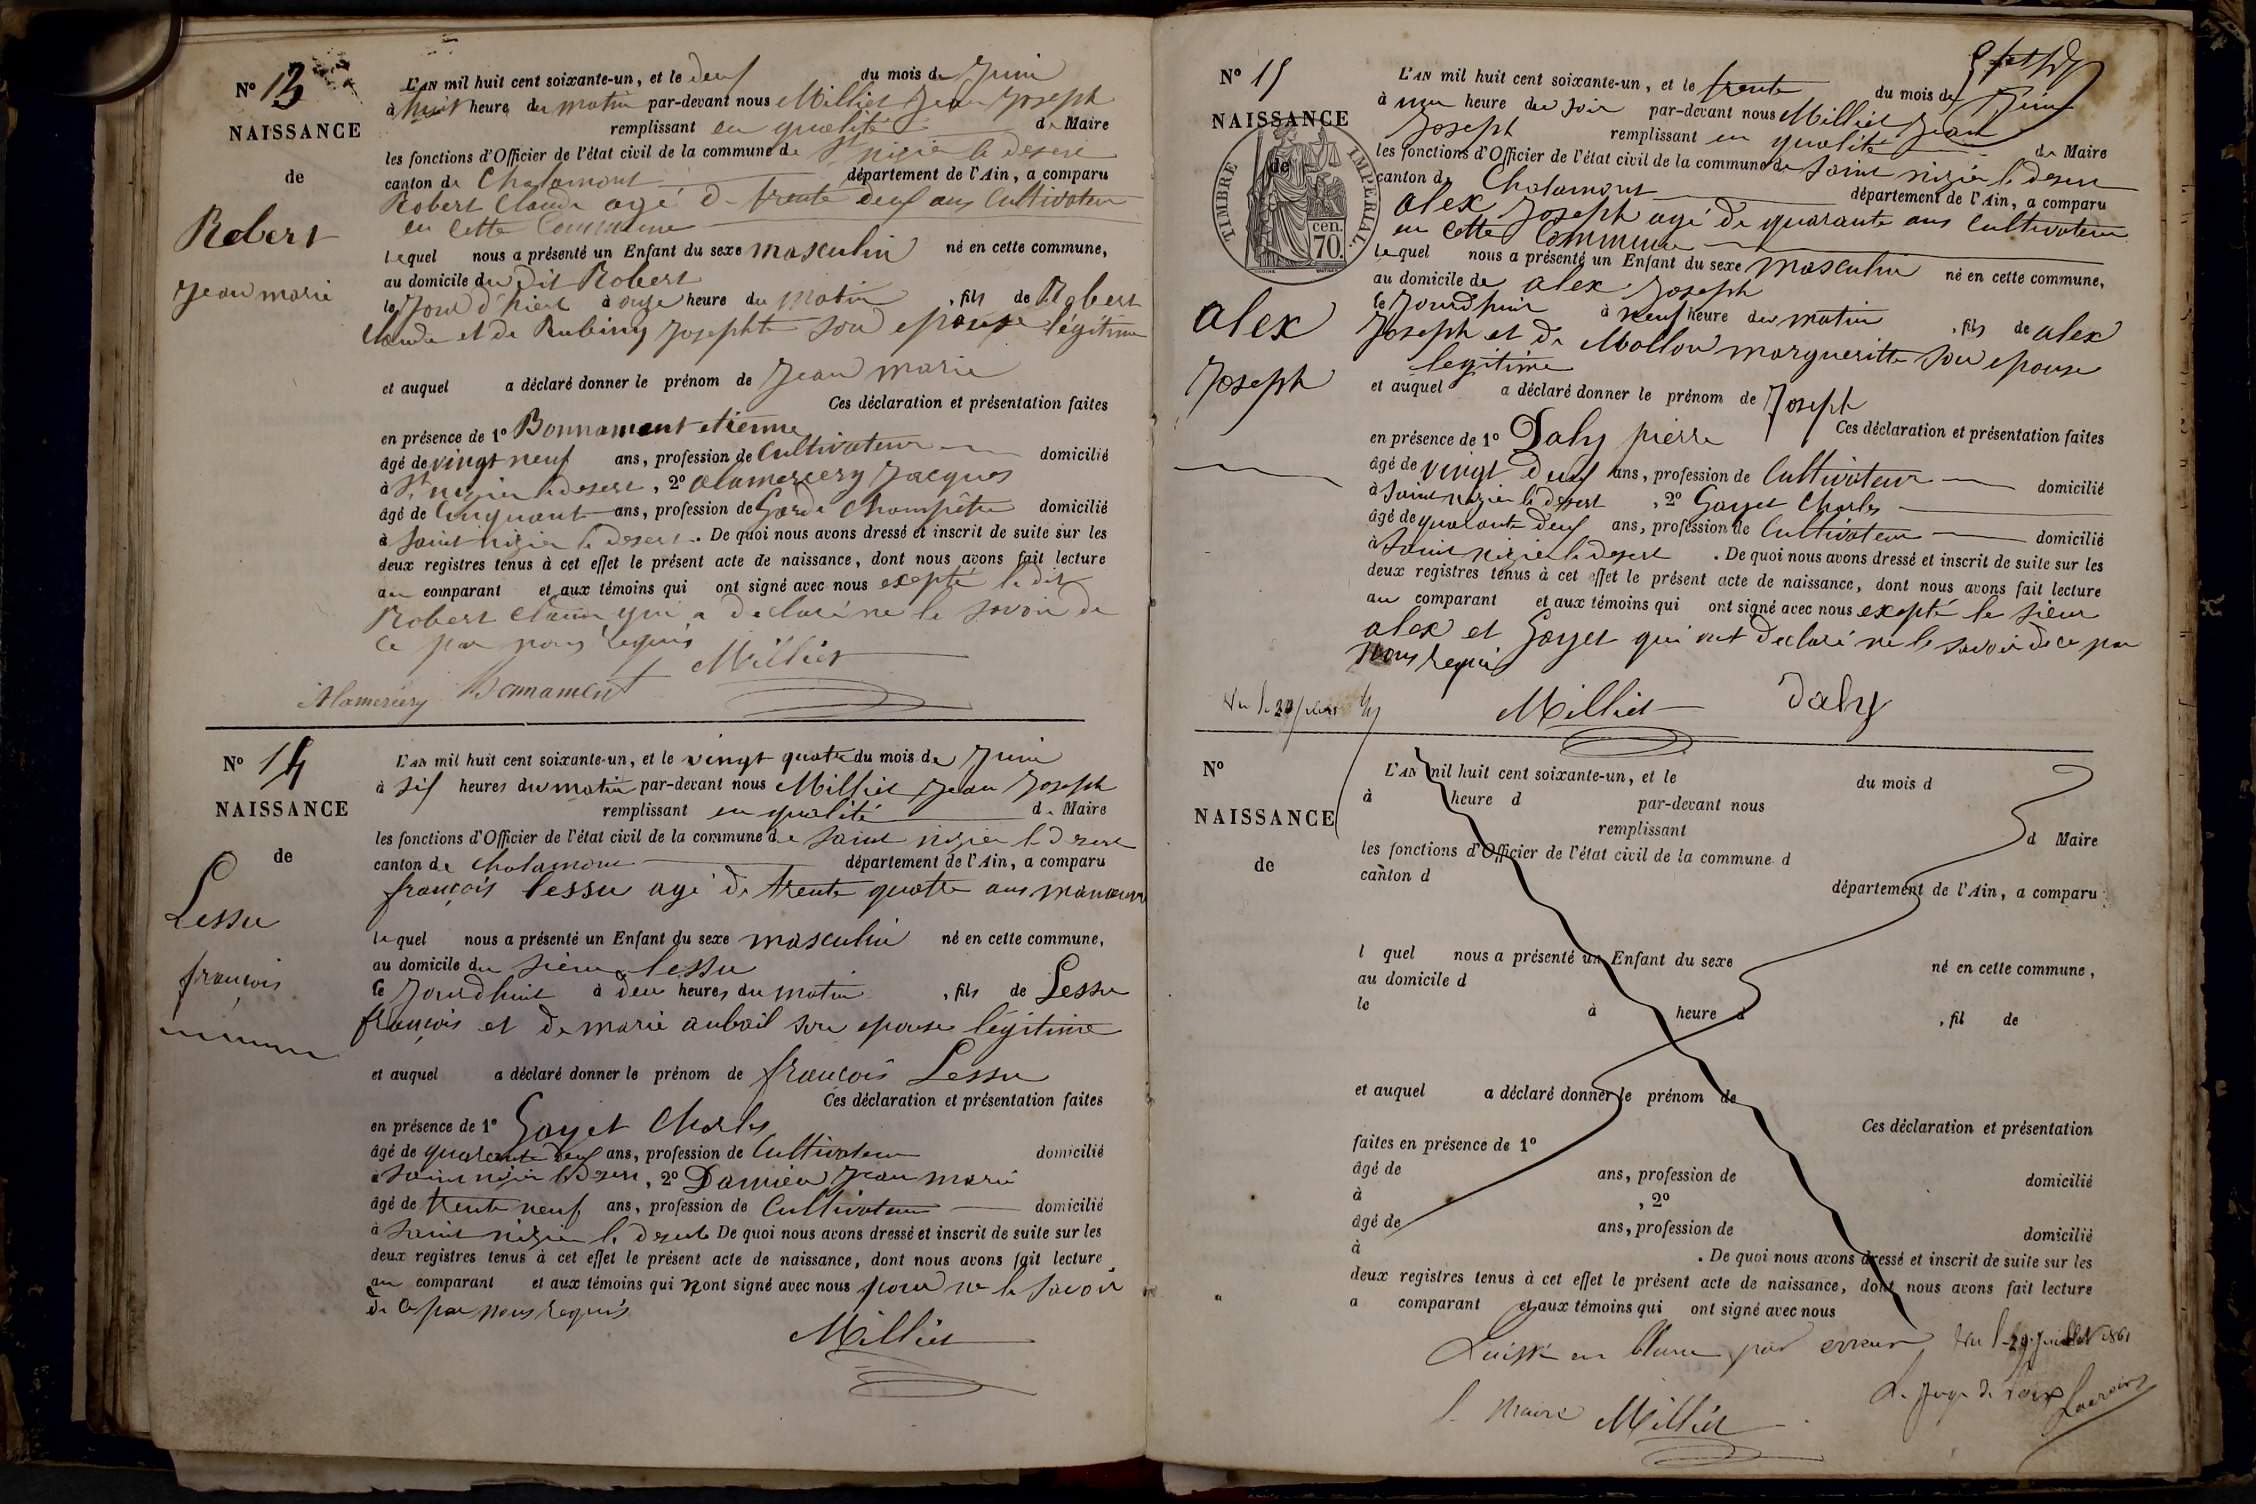 N° 13
NAISSANCE
de
Robert
Jean marie
L'AN mil huit cent soixante-un, et le deux du mois de Juin
à huit heure du matin par-devant nous Milliet Jean Joseph
remplissant en qualité de Maire
les fonctions d'Officier de l'état civil de la commune de St nizier le desert
canton de Chalamont département de l'Ain, a comparu
Robert Claude agé de trente deux ans Cultivateur
en cette Commune
lequel nous a présenté un Enfant du sexe masculin né en cette commune,
au domicile du dit Robert
le Jour d'hier à onze heure du matin, fils de Robert
Claude et de Rubiny Josephte son epouse légitime
et auquel a déclaré donner le prénom de Jean marie
Ces déclaration et présentation faites
en présence de 1° Bonnament etienne
âgé de vingt neuf ans, profession de Cultivateur domicilié
à St nizier le desert, 2° alamercery Jacques
âgé de Cinquante ans, profession de Garde Champêtre domicilié
à saint nizier le desert. De quoi nous avons dressé et inscrit de suite sur les
deux registres tenus à cet effet le présent acte de naissance, dont nous avons fait lecture
au comparant et aux témoins qui ont signé avec nous excepté le dit
Robert Claude qui a declaré ne le savoir de
ce par nous requis
Milliet
Alamercery Bonnament
N° 14
NAISSANCE
de
Lessu
françois
L'AN mil huit cent soixante-un, et le vingt quatre du mois de Juin
à six heures du matin par-devant nous Milliet Jean Joseph
remplissant en qualité de Maire
les fonctions d'Officier de l'état civil de la commune de saint nizier le desert
canton de Chalamont département de l'Ain, a comparu
françois lessu agé de trente quatre ans manoeuvre
lequel nous a présenté un Enfant du sexe masculin né en cette commune,
au domicile du sieur lessu
le Jourdhuit à deux heures du matin, fils de Lessu
françois et de marie aubail son epouse légitime
et auquel a déclaré donner le prénom de françois Lessu
Ces déclaration et présentation faites
en présence de 1° Gayet Charles
âgé de quarante deux ans, profession de Cultivateur domicilié
à saint nizier le desert, 2° Damieu Jean marie
âgé de trente neuf ans, profession de Cultivateur domicilié
à saint nizier le desert De quoi nous avons dressé et inscrit de suite sur les
deux registres tenus à cet effet le présent acte de naissance, dont nous avons fait lecture
au comparant et aux témoins qui nont signé avec nous pour ne le savoir
de ce par nous requis
Milliet
N° 15
NAISSANCE
de
TIMBRE IMPÉRIAL.
cen. 70.
alex
Joseph
L'AN mil huit cent soixante-un, et le trente du mois de Juin
à une heure du soir par-devant nous Milliet Jean
Joseph remplissant en qualité de Maire
les fonctions d'Officier de l'état civil de la commune de saint nizier le desert
canton de Chalamont département de l'Ain, a comparu
alex Joseph agé de quarante ans cultivateur
en cette Commune
lequel nous a présenté un Enfant du sexe masculin né en cette commune,
au domicile de alex Joseph
le Jourdhui à neuf heure du matin, fils de alex
Joseph et de Mollon margueritte son epouse
legitime
et auquel a déclaré donner le prénom de Joseph
Ces déclaration et présentation faites
en présence de 1° Daly pierre
âgé de vingt deux ans, profession de Cultivateur domicilié
à saint nizier le desert, 2° Gayet Charles
âgé de quarante deux ans, profession de Cultivateur domicilié
à saint nizier le desert. De quoi nous avons dressé et inscrit de suite sur les
deux registres tenus à cet effet le présent acte de naissance, dont nous avons fait lecture
au comparant et aux témoins qui ont signé avec nous excepté le sieur
alex et Gayet qui ont declaré ne le savoir de ce par
nous requis
Milliet Daly
N°
NAISSANCE
de
L'AN mil huit cent soixante-un, et le du mois d
à heure d par-devant nous
remplissant d Maire
les fonctions d'Officier de l'état civil de la commune d
canton d département de l'Ain, a comparu
l quel nous a présenté un Enfant du sexe né en cette commune,
au domicile d
le à heure d , fil de
et auquel a déclaré donner le prénom de
Ces déclaration et présentation
faites en présence de 1°
âgé de ans, profession de domicilié
à , 2°
âgé de ans, profession de domicilié
à . De quoi nous avons dressé et inscrit de suite sur les
deux registres tenus à cet effet le présent acte de naissance, dont nous avons fait lecture
a comparant et aux témoins qui ont signé avec nous
Laissé en blanc par erreur Vu le 29 Juillet 1861
le Maire Milliet Le Juge de Paix